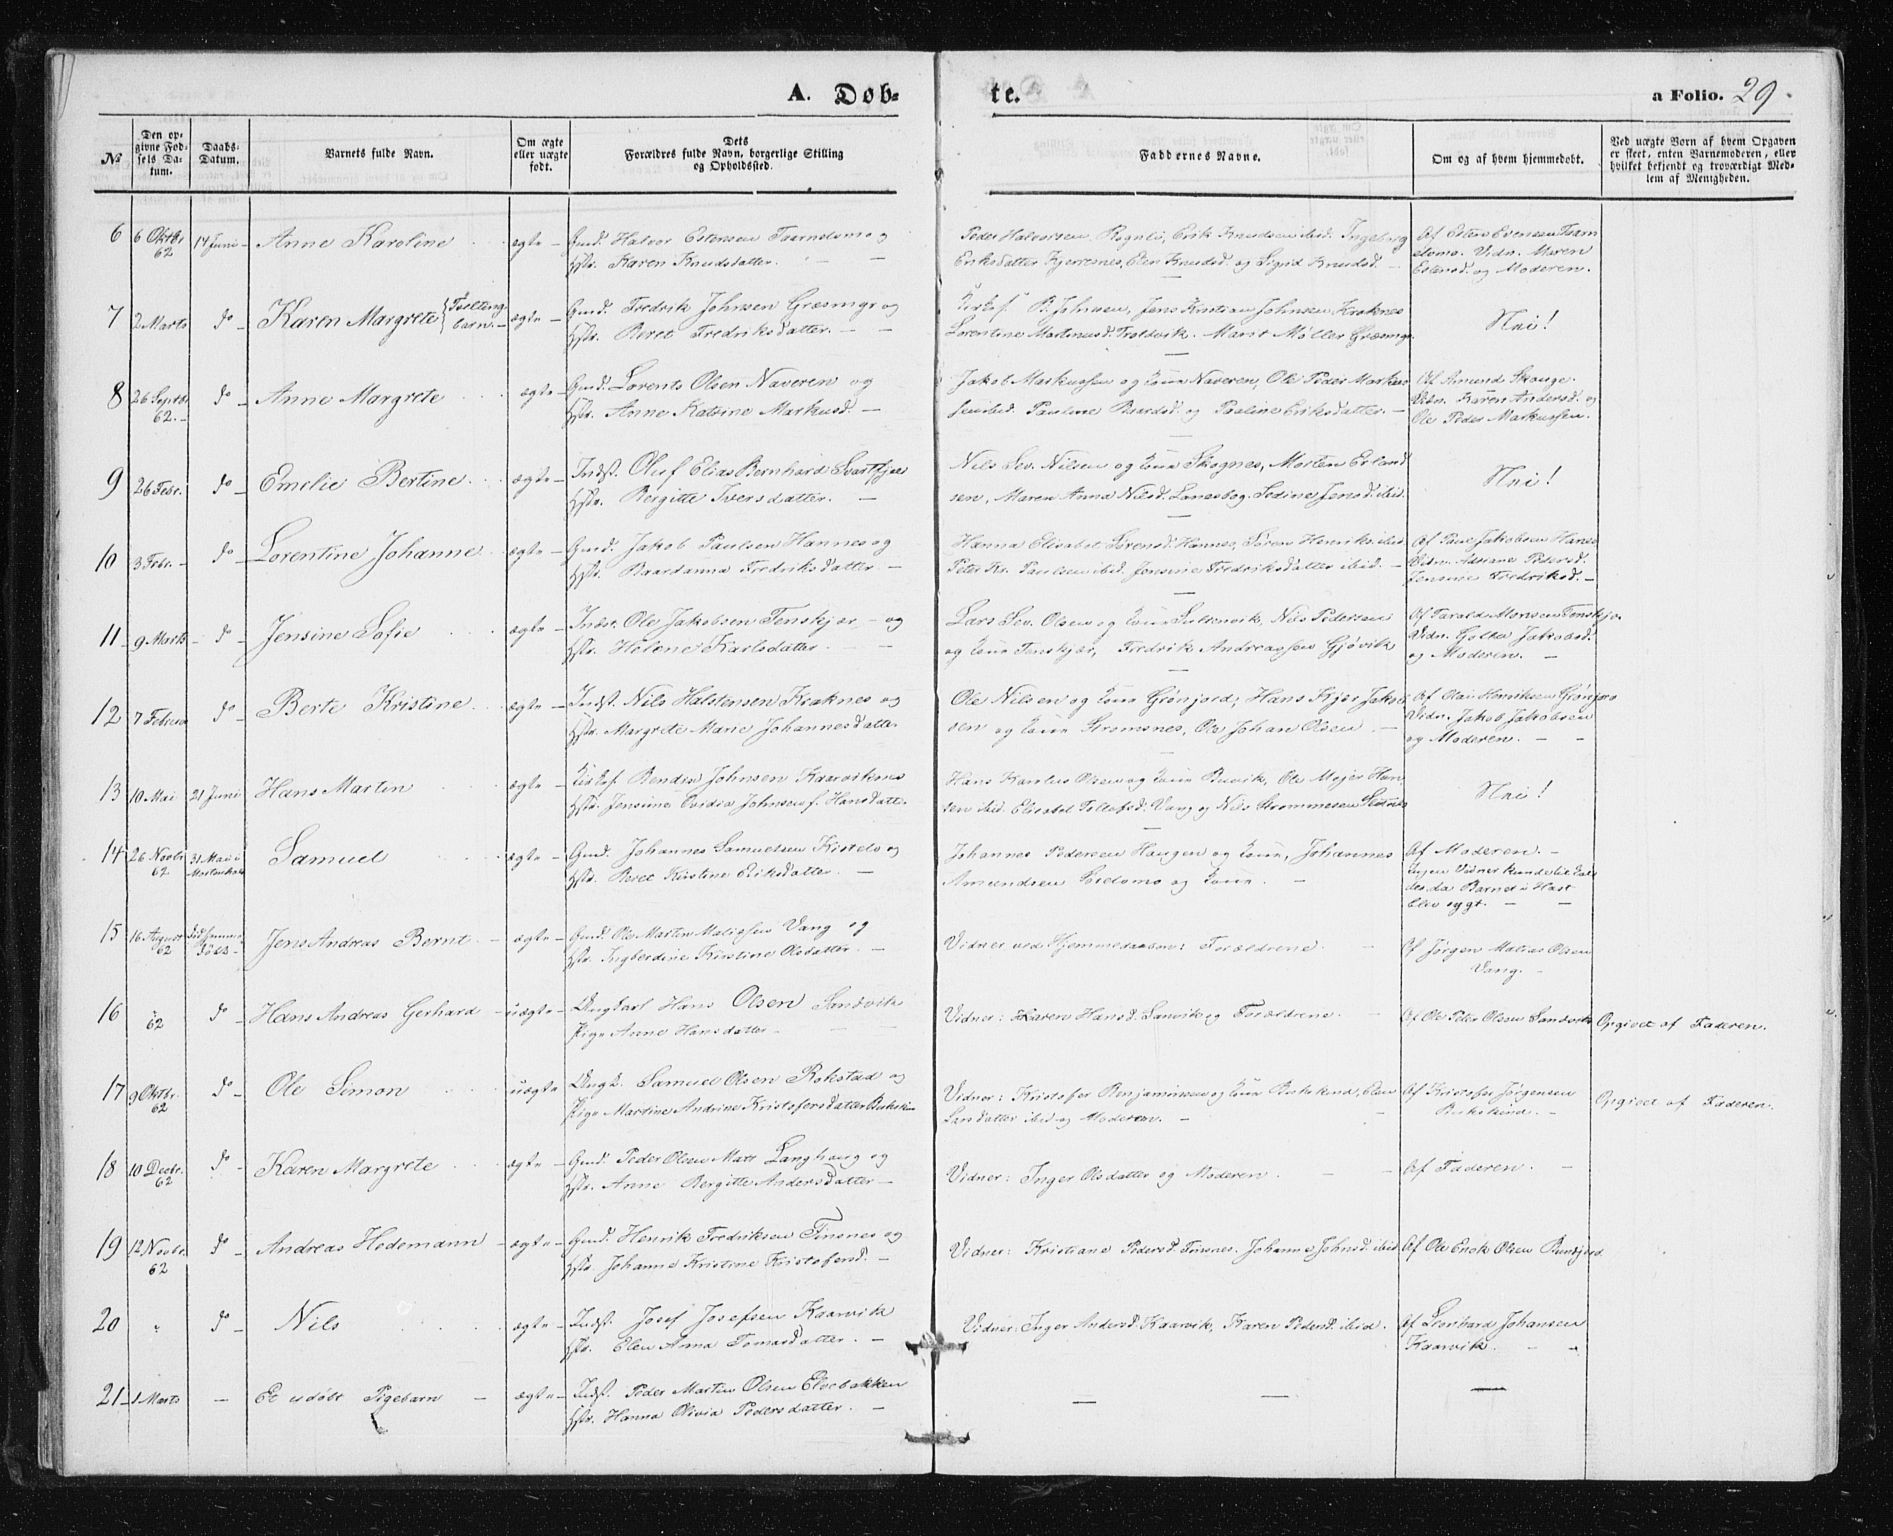 A. Døb-
te.
a Folio. 29.
No
Den opgivne Fødsels Datum.
Daabs-Datum.
Barnets fulde Navn.
Om ægte eller uægte født.
Dets Forældres fulde Navn, borgerlige Stilling og Opholdssted.
Faddernes Navne.
Om og af hvem hjemmedøbt.
Ved uægte Børn af hvem Opgaven er skeet, enten Barnemoderen, eller hvilket bekjendt og troværdigt Medlem af Menigheden.
6 6 Oktbr 62 14 Juni Anne Karoline ægte Gmd. Halvor Estensen Taarnelvmo og
Hstr. Karen Knudsdatter.
Peder Halvorsen, Rognli, Erik Knudsen ibid. Ingeborg
Eriksdatter Kjerresnes, Elen Knudsd. og Sigrid Knudsd.
Af Esten Evensen Taarn
elvmo. Vidn. Maren
Estensd. og Moderen.
7 2 Marts do Karen Margrete {Tvilling barn. ægte Gmd. Fredrik Johnsen Græsmyr og
Hstr. Beret Fredriksdatter.
B. Johnsen, Jens Kristian Johnsen Kraknes
Lorentine Martinusd. Troldvik. Marit Møller Græsmyr.
Nei!
8 26 Septbr 62. do Anne Margrete ægte Gmd. Lorents Olsen Naveren og
Hstr. Anne Katrine Markusd.
Jakob Markussen og Kone Naveren, Ole Peder Markus
sen ibid. Pauline Baardsd. og Pauline Eriksdatter.
Af Amund Skouge.
Vidn. Karen Andersd. og
Ole Peder Markussen.
9 26 Febr. do Emelie Bertine ægte Indst. Oluf Elias Bernhard Svartfjæs
Hstr. Bergitte Iversdatter.
Nils Sev. Nilsen og Kone Skognes, Morten Erland
sen, Maren Anna Nilsd. Lanesbog. Sedine Jensd. ibid.
Nei!
10 3 Febr. do Lorentine Johanne ægte Gmd. Jakob Paulsen Hannes og
Hstr. Baardanna Fredriksdatter
Hanna Elisabet Sørensd. Hannes, Søren Henriks. ibid.
Peter Kr. Paulsen ibid. Jensine Fredriksdatter ibid.
Af Paul Jakobsen Hanes
Vidn. Adriane Pedersd.
Jensine Fredriksd.
11 9 Marts do Jensine Sofie ægte Indst. Ole Jakobsen Tenskjær og
Hstr. Helene Karlsdatter.
Lars Sev. Olsen og Kone Sultenvik, Nils Pedersen
og Kone Tenskjær, Fredrik Andreassen Gjøvik
Af Tarald Monsen Tenskjær
Vidn. Golla Jakobsd.
og Moderen.
12 7 Februar do Berte Kristine ægte Indst. Nils Halstensen Kraknes og
Hstr. Margrete Marie Johannesdatter
Ole Nilsen og Kone Grønjord, Hans Kjer Jakob
sen og Kone Strømsnes, Ole Johan Olsen
Af Olai Henriksen Grønjord
Vidn. Jakob Jakobsen
og Moderen.
13 10 Mai 21 Juni Hans Martin ægte Bendix Johnsen Kaarviknes
Hstr. Jensine Johnsen f. Hansdatter
Hans Karelius Olsen og Kone Buvik, Ole Mejer Han
sen ibid. Elisabet Tollefsd. Vang og Nils Strømmesen
Nei!
14 26 Novbr 62 31 Mai i Mortenhals Samuel ægte Gmd. Johannes Samuelsen Kistelv og
Hstr. Beret Kirstine Eriksdatter.
Johannes Pedersen Haugen og Kone, Johannes
Amundsen Sørelvmo og Kone.
Af Moderen.
Ingen Vidner kunde bli kal
des, da Barnet i Hast
blev sygt.
15 16 August 62 Jens Andreas Bernt ægte Gmd. Ole Martin Matissen Vang og
Hstr. Ingberdine Kirstine Olsdatter.
Vidner ved Hjemmedaaben: Forældrene.
Af Jørgen Matias Olsen
Vang.
16 " 62 do Hans Andreas Gerhard uægte Ungkarl Hans Olsen Sandvik
Pige Anne Hansdatter
Vidner: Karen Hansd. Sanvik og Forældrene.
Af Ole Peter Olsen Sandvik
Opgivet af Faderen.
17 9 Oktbr. 62 do Ole Simon uægte Ungk. Samuel Olsen Rokstad og
Pige Martine Andrine Kristofersdatter Bukskin
Vidner: Kristofer Benjaminsen og Kone Bukskind, Elen
Larsdatter ibid og Moderen.
Af Kristofer Jørgensen
Bukskind.
Opgivet af Faderen.
18 10 Decbr. 62 do Karen Margrete ægte Gmd. Peder Olsen Mats Langhaug og
Hstr. Anne Bergitte Andersdatter
Vidner: Inger Olsdatter og Moderen.
Af Faderen.
19 12 Novbr. 62 do Andreas Hedemann ægte Gmd. Henrik Fredriksen Finsnes og
Hstr. Johanna Kristine Kristofersd.
Vidner: Kristiane Pedersd. Finsnes. Johanna Johnsd. ibid
Af Ole Enok Olsen Bunkjord.
20 " do Nils ægte Indst. Josef Josefsen Kaarvik
Hstr. Elen Anna Tomasdatter.
Vidner: Inger Andersd. Kaarvik, Karen Pedersd. ibid.
Af Leonhard Johansen
Kaarvik.
21 1 Marts Et udøbt Pigebarn ægte Indst. Peder Martin Olsen Elvebakken
Hstr. Hanna Olivia Pedersdatter.